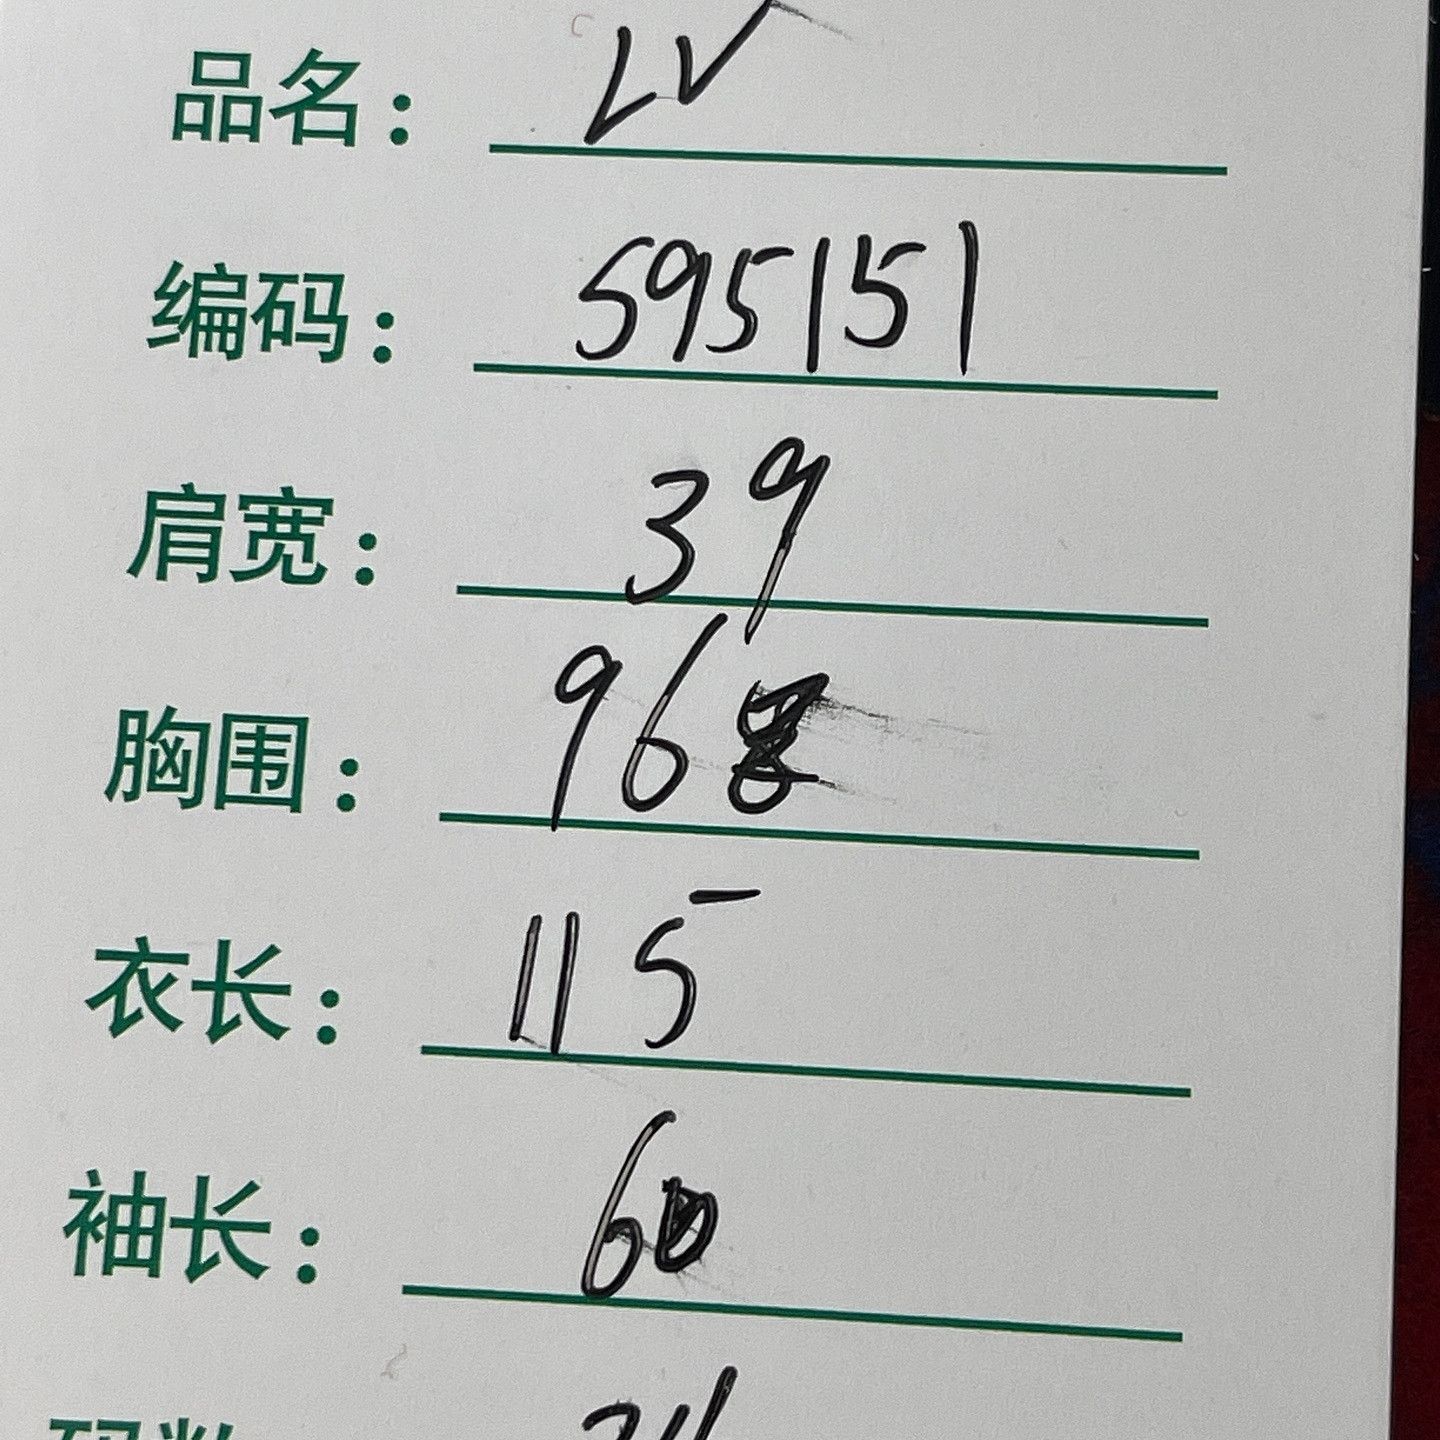 品名： LV
编码： 595151
肩宽： 39
胸围： 96
衣长： 115
袖长： 60
码数